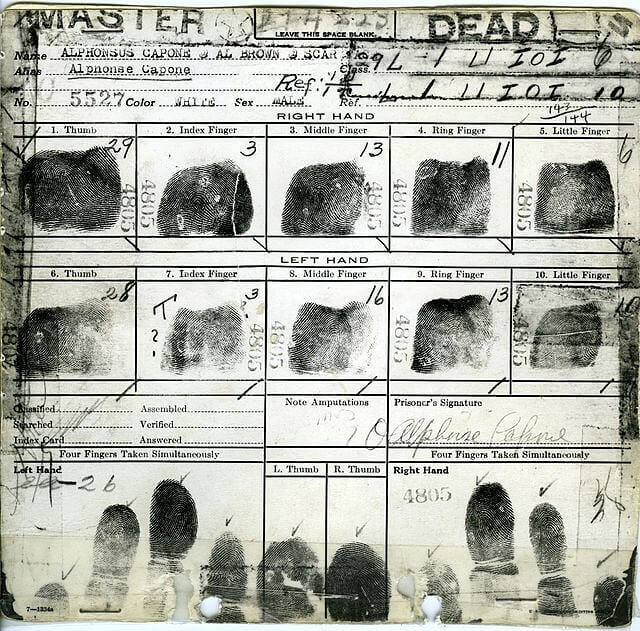 MASTER
DEAD
LEAVE THIS SPACE BLANK.
Name ALPHONSUS CAPONE
AL BROWN
SCAR
Alias Alphonse Capone
Class.
9 L 1 U IOI 6
Ref:
1 U IOI 10
No. 5527 Color WHITE Sex MALE Ref.
144
RIGHT HAND
1. Thumb 2. Index Finger 3. Middle Finger 4. Ring Finger 5. Little Finger
29 3 13 11 6
4805 4805 4805 4805 4805
LEFT HAND
6. Thumb 7. Index Finger 8. Middle Finger 9. Ring Finger 10. Little Finger
28 T ? ? 3 16 13
4805 4805 4805
Classified Assembled
Searched Verified
Index Card Answered
Note Amputations
Prisoner's Signature
Alphonse Capone
Four Fingers Taken Simultaneously
Four Fingers Taken Simultaneously
Left Hand L. Thumb R. Thumb Right Hand
26
4805
7—1334a